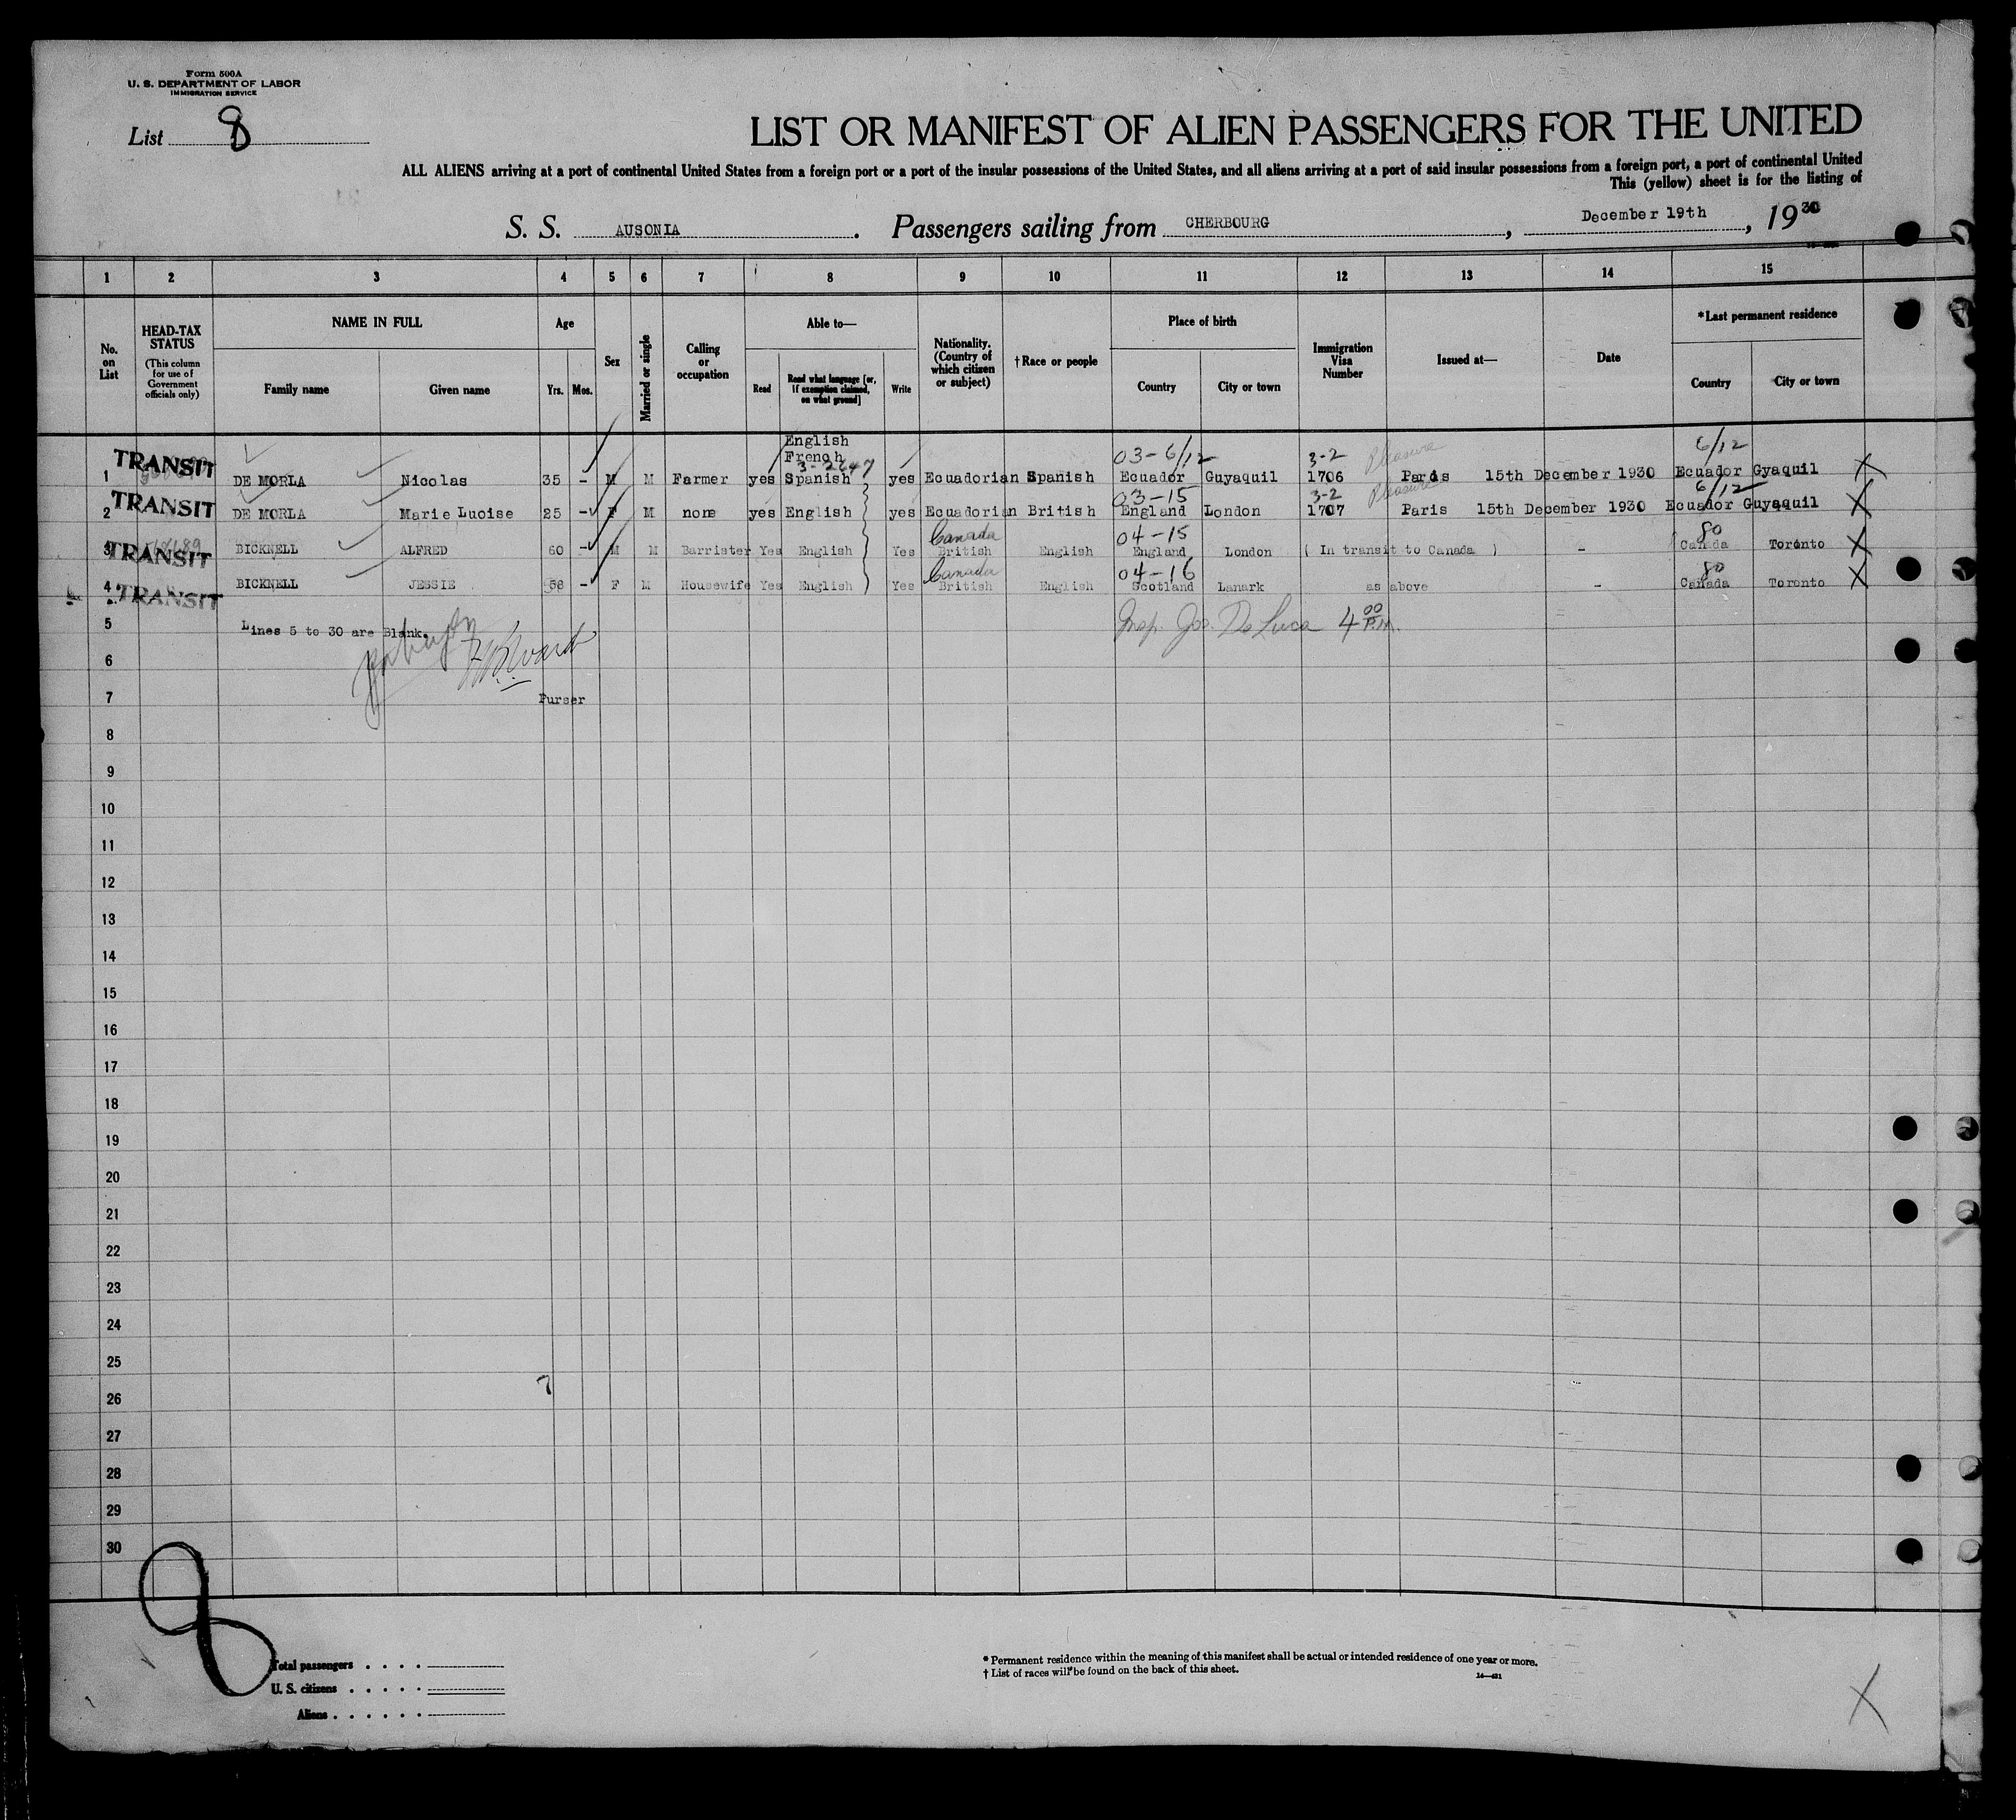 Form 500A
U. S. DEPARTMENT OF LABOR
IMMIGRATION SERVICE
List 8
LIST OR MANIFEST OF ALIEN PASSENGERS FOR THE UNITED
ALL ALIENS arriving at a port of continental United States from a foreign port or a port of the insular possessions of the United States, and all aliens arriving at a port of said insular possessions from a foreign port, a port of continental United
This (yellow) sheet is for the listing of
S. S. AUSONIA. Passengers sailing from CHERBOURG, December 19th, 1930
1 2 3 4 5 6 7 8 9 10 11 12 13 14 15
No. on List
HEAD-TAX STATUS
(This column for use of Government officials only)
NAME IN FULL
Family name Given name
Age
Yrs. Mos.
Sex
Married or single
Calling or occupation
Able to—
Read Read what language [or, if exemption claimed, on what ground] Write
Nationality. (Country of which citizen or subject)
†Race or people
Place of birth
Country City or town
Immigration Visa Number
Issued at—
Date
*Last permanent residence
Country City or town
English
French 3-2647 03-6/12 3-2 Pleasure 6/12
1 TRANSIT DE MORLA Nicolas 35 - M M Farmer yes Spanish yes Ecuadorian Spanish Ecuador Guyaquil 1706 Paris 15th December 1930 Ecuador Gyaquil X
03-15 3-2 Pleasure 6/12
2 TRANSIT DE MORLA Marie Luoise 25 - F M none yes English yes Ecuadorian British England London 1707 Paris 15th December 1930 Ecuador Guyaquil X
Canada 04-15 80
3 TRANSIT BICKNELL ALFRED 60 - M M Barrister Yes English Yes British English England London ( In transit to Canada ) - Canada Toronto X
Canada 04-16 80
4 TRANSIT BICKNELL JESSIE 58 - F M Housewife Yes English Yes British English Scotland Lanark as above - Canada Toronto X
5 Lines 5 to 30 are Blank. Insp. Jos. De Luca 4 00 P.M.
6
7 Purser
8
9
10
11
12
13
14
15
16
17
18
19
20
21
22
23
24
25
26
27
28
29
30
8
Total passengers . . . .
U. S. citizens . . . . .
Aliens . . . . . .
* Permanent residence within the meaning of this manifest shall be actual or intended residence of one year or more.
† List of races will be found on the back of this sheet.
14—421
X